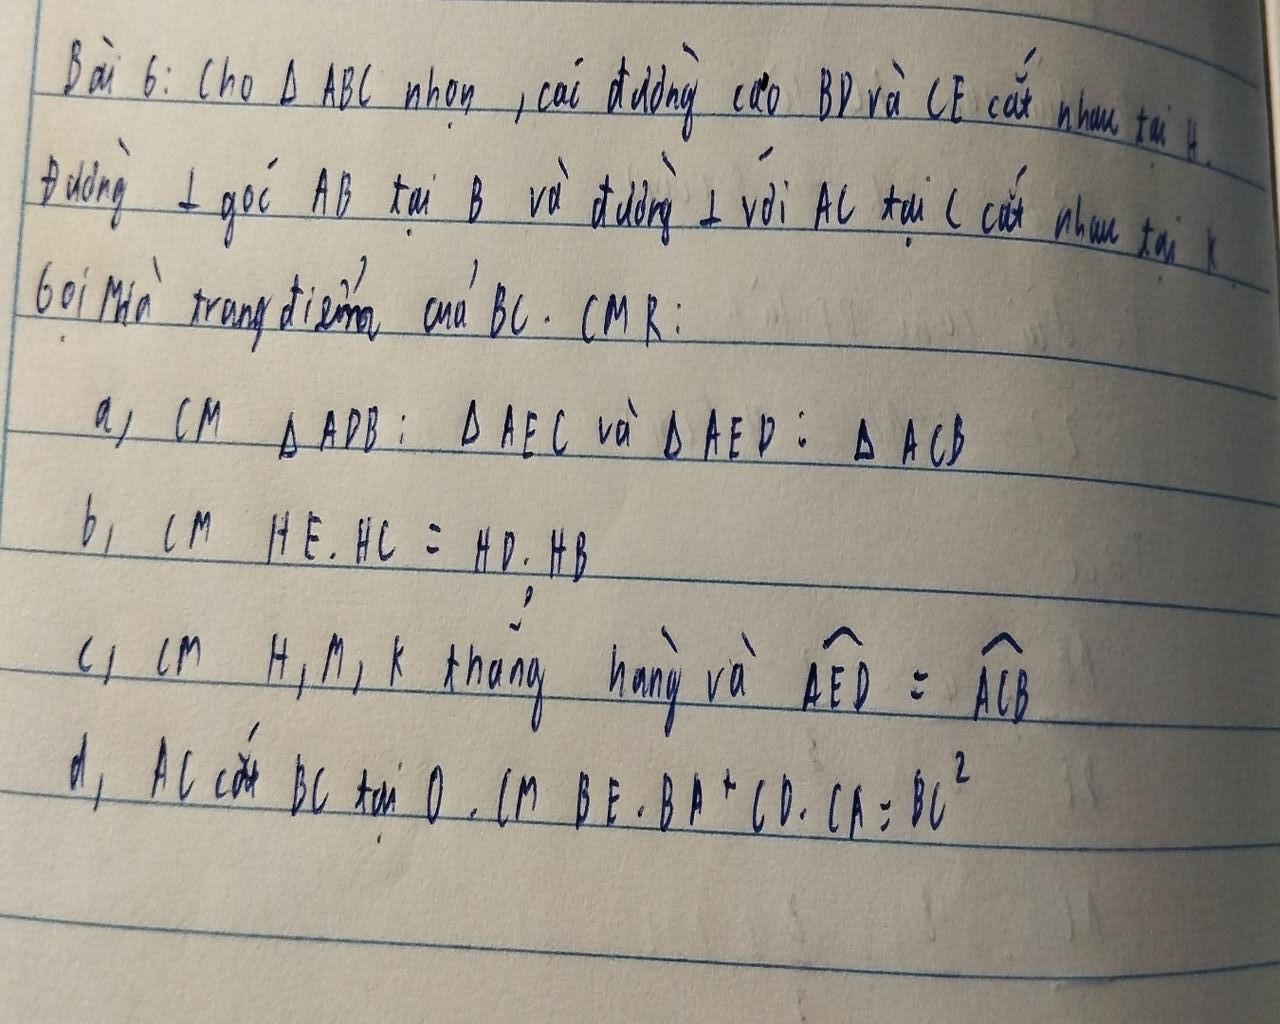 Bài 6: Cho Δ ABC nhọn, các đường cao BD và CE cắt nhau tại H.
Đường ⊥ góc AB tại B và đường ⊥ với AC tại C cắt nhau tại K
Gọi M là trung điểm của BC. CMR:
a, CM Δ ADB : Δ AEC và Δ AED : Δ ACB
b, CM HE.HC = HD.HB
c, CM H, M, K thẳng hàng và \widehat{AED} = \widehat{ACB}
d, AC cắt BC tại O. CM BE.BA + CD.CA = BC²